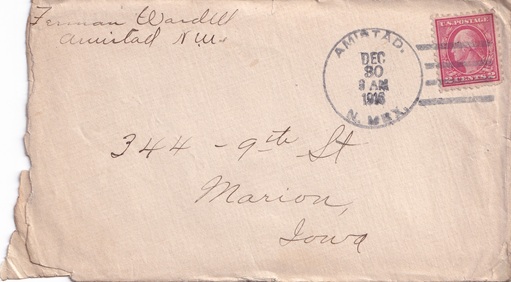 Fenman Wardell
Amistad N.M.
AMISTAD.
DEC
30
9 AM
1916
N. MEX.
U.S. POSTAGE
2 CENTS 2
344 - 9th St
Marion,
Iowa